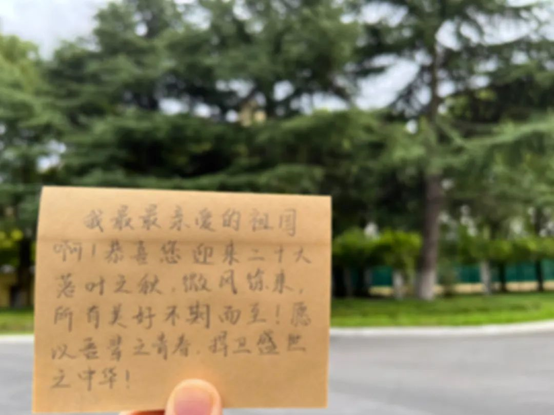 我最最亲爱的祖国
啊！恭喜您迎来二十大
落叶之秋，微风徐来，
所有美好不期而至！愿
以吾辈之青春，捍卫盛世
之中华！